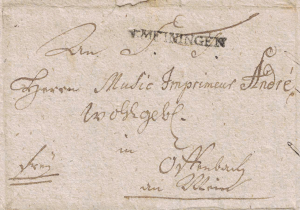 v. MEININGEN
An
Herrn Music Imprimeur André
Wohlgeb.
in
Offenbach
frey
am Mein